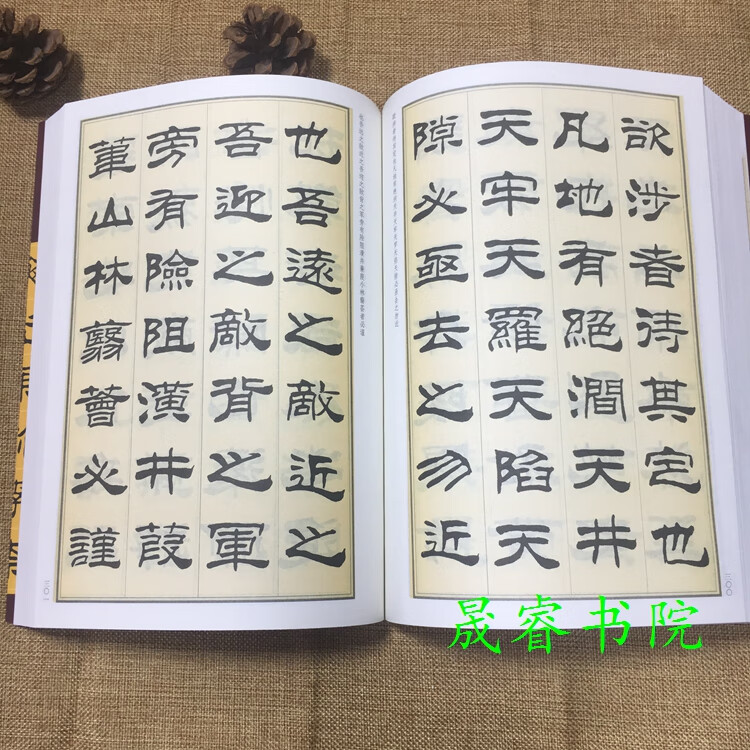 欲涉者待其定也
凡地有絕澗天井
天牢天羅天陷天
隙必亟去之勿近
三〇〇
也吾遠之敵近之
吾迎之敵背之軍
旁有險阻潢井葭
葦山林翳薈必謹
三〇一
晟睿书院